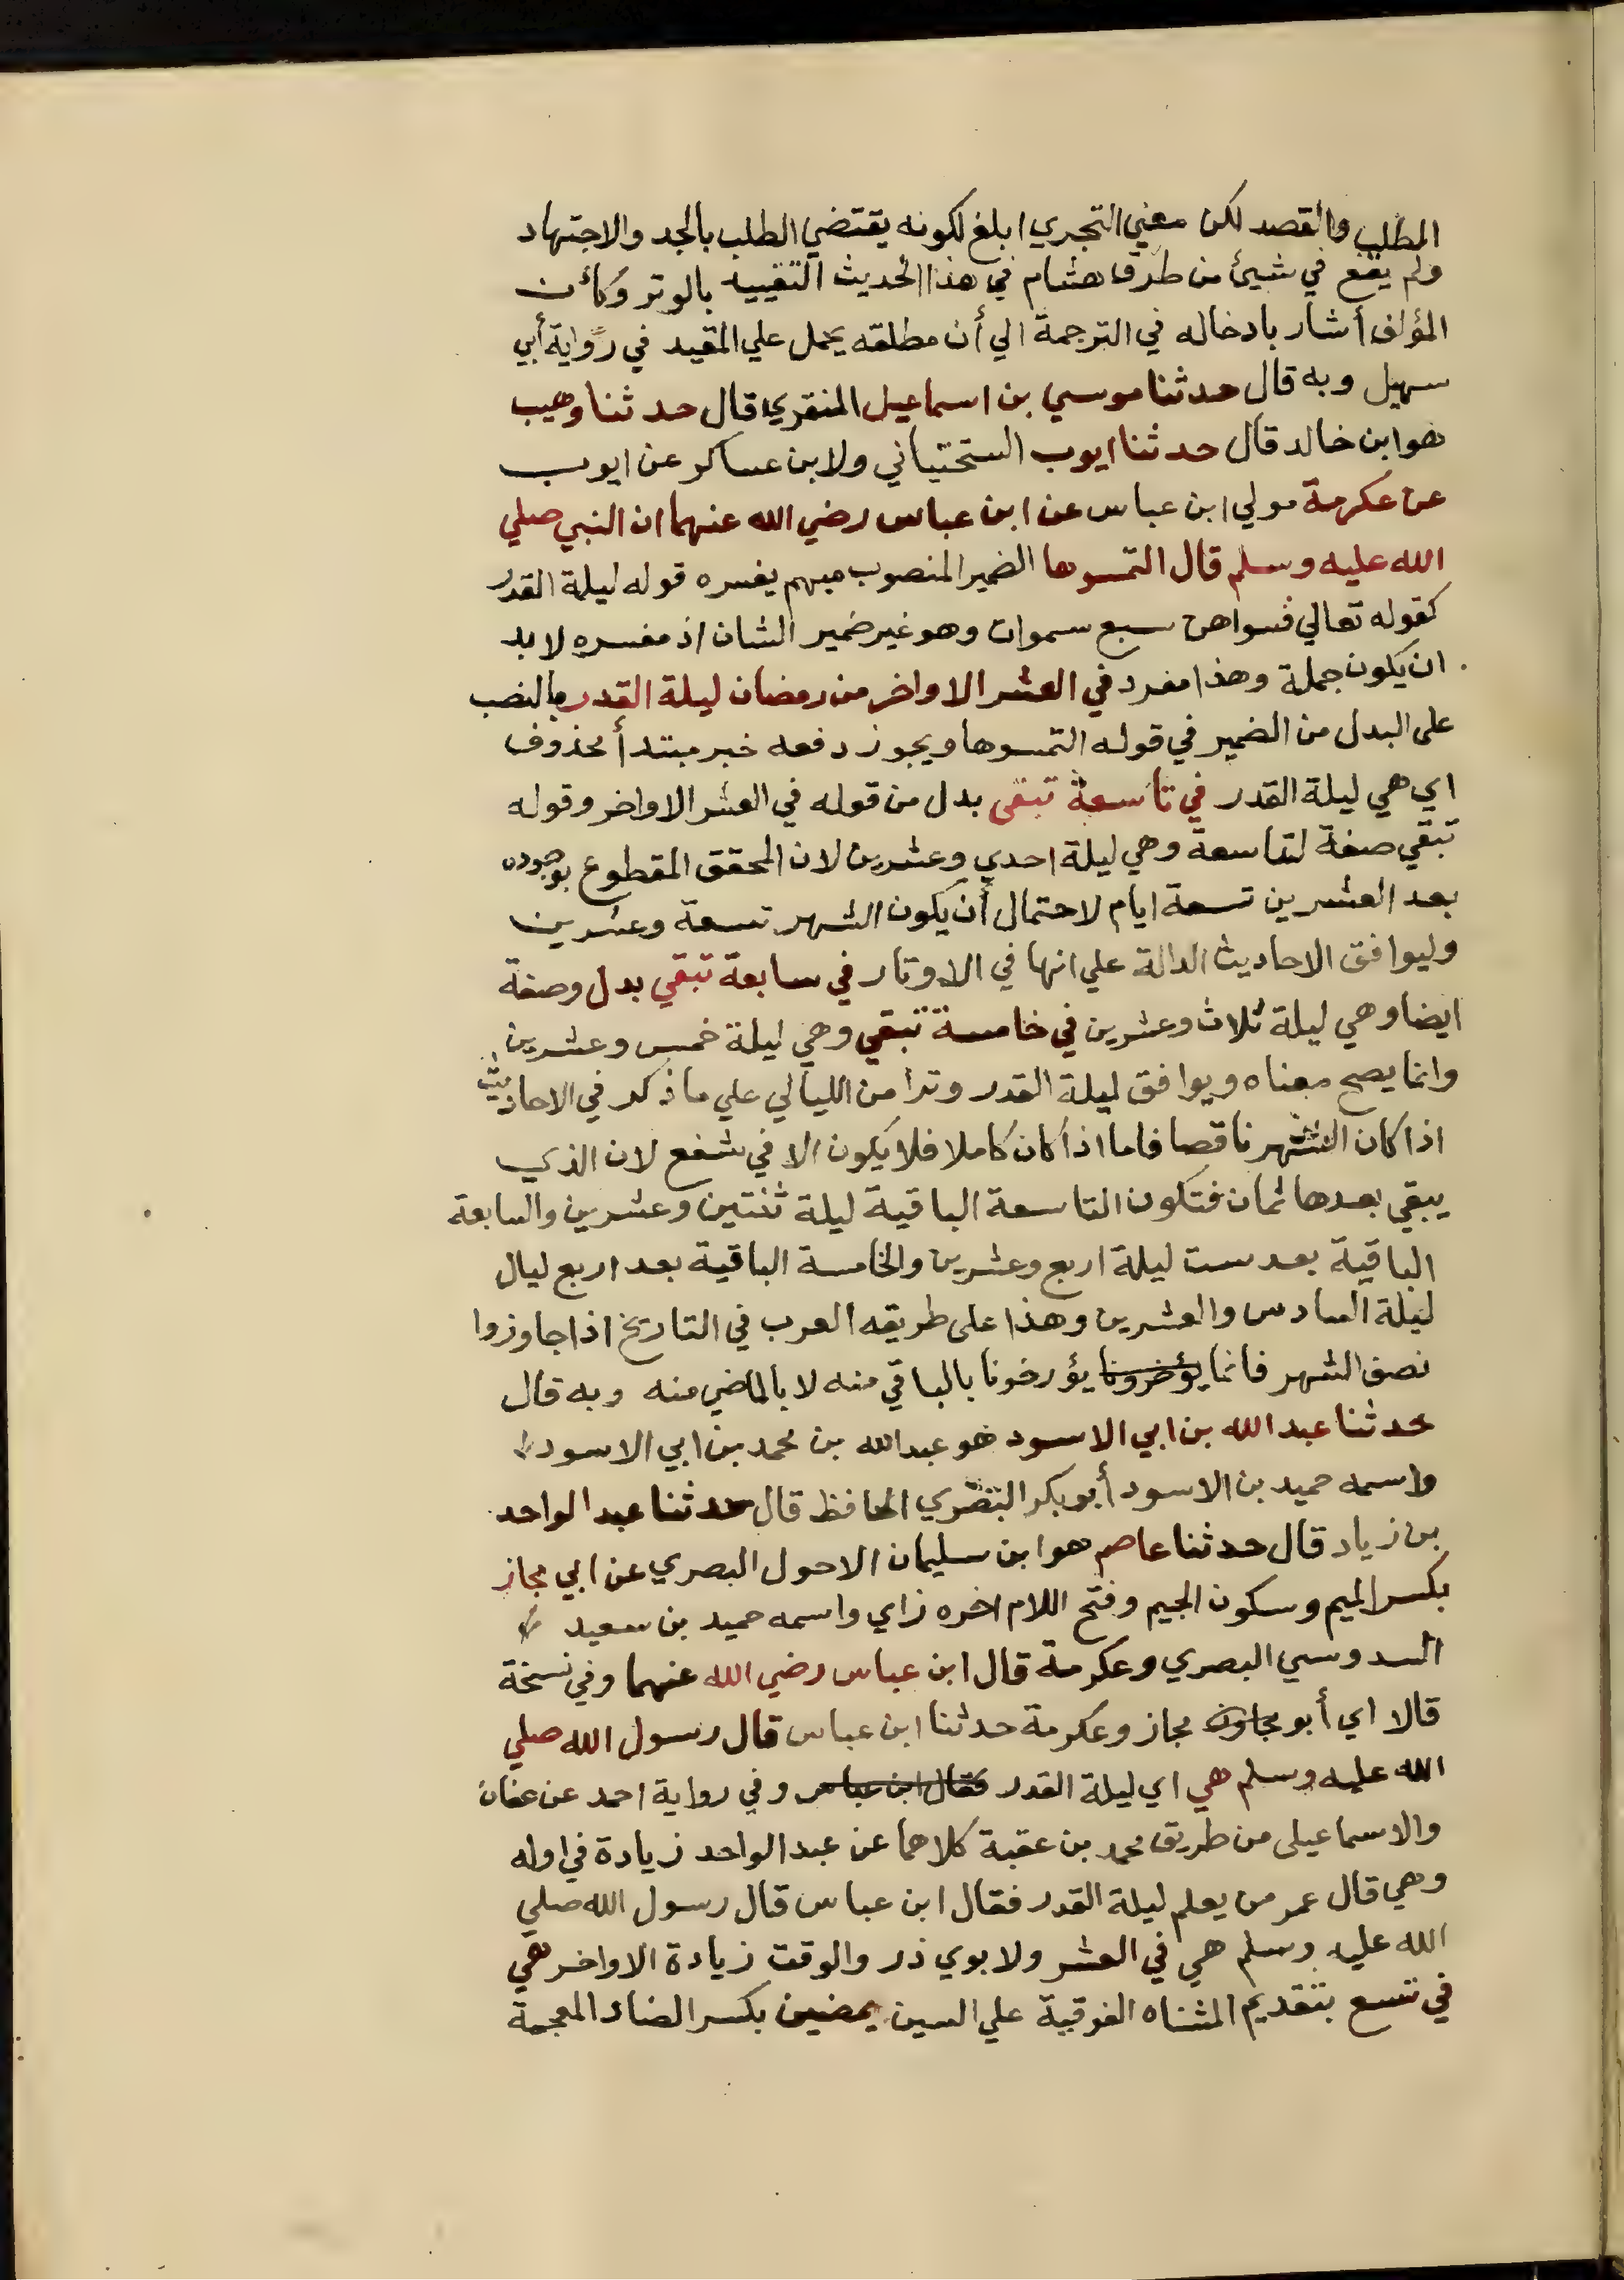 المطلب والقصد لكن معني التجري ابلغ لكونه يقتضي الطلب بالجد والاجتهاد
ولم يقع في شيئ من طرق هشام في هذا الحديث التقييد بالوتر وكأن
المؤلف أشار بادخاله في الترجمة الي أن مطلقه يحمل علي المقيد في رواية أبي
سهيل وبه قال حدثنا موسي بن اسماعيل المنقري قال حدثنا وهيب
هو ابن خالد قال حدثنا ايوب الستختياني ولابن عساكر عن ايوب
عن عكرمة مولي ابن عباس عن ابن عباس رضي الله عنهما ان النبي صلي
الله عليه وسلم قال التمسوها الضمير المنصوب مبهم يفسره قوله ليلة القدر
كقوله تعالي فسواهن سبع سموات وهو غير ضمير الشان اذ مفسره لا بد
ان يكون جملة وهذا مفرد في العشر الاواخر من رمضان ليلة القدر بالنصب
على البدل من الضمير في قوله التمسوها ويجوز رفعه خبر مبتدأ محذوف
اي هي ليلة القدر في تاسعة تبقى بدل من قوله في العشر الاواخر وقوله
تبقي صفة لتاسعة وهي ليلة احدي وعشرين لان المحقق المقطوع بوجوده
بعد العشرين تسعة ايام لاحتمال أن يكون الشهر تسعة وعشرين
وليوافق الاحاديث الدالة علي انها في الاوتار في سابعة تبقي بدل وصفة
ايضا وهي ليلة ثلاث وعشرين في خامسة تبقي وهي ليلة خمس وعشرين
وانما يصح معناه ويوافق ليلة القدر وترا من الليالي علي ما ذكر في الاحاديث
اذا كان الشهر ناقصا فاما اذا كان كاملا فلا يكون الا في شفع لان الذي
يبقي بعدها ثمان فتكون التاسعة الباقية ليلة ثنتين وعشرين والسابعة
الباقية بعد ست ليلة اربع وعشرين والخامسة الباقية بعد اربع ليال
ليلة السادس والعشرين وهذا على طريقه العرب في التاريخ اذا جاوزوا
نصف الشهر فانما يؤخرونا يؤرخونا بالباقي منه لا بالماضي منه وبه قال
حدثنا عبد الله بن ابي الاسود هو عبدالله بن محمد بن ابي الاسود
واسمه حميد بن الاسود أبو بكر البصري الحافظ قال حدثنا عبد الواحد
بن زياد قال حدثنا عاصم هو ابن سليمان الاحول البصري عن ابي مجلز
بكسر الميم وسكون الجيم وفتح اللام اخره زاي واسمه حميد بن سعيد
السدوسي البصري وعكرمة قال ابن عباس رضي الله عنهما وفي نسخة
قالا اي أبو مجلز وعكرمة حدثنا ابن عباس قال رسول الله صلي
الله عليه وسلم هي اي ليلة القدر فقال ابن عباس وفي رواية احمد عن عفان
والاسماعيلى من طريق محمد بن عقبة كلاهما عن عبد الواحد زيادة في اوله
وهي قال عمر من يعلم ليلة القدر فقال ابن عباس قال رسول الله صلي
الله عليه وسلم هي في العشر ولابوي ذر والوقت زيادة الاواخر هي
في تسع بتقديم المثناه الفوقية علي السين يمضين بكسر الضاد المعجمة